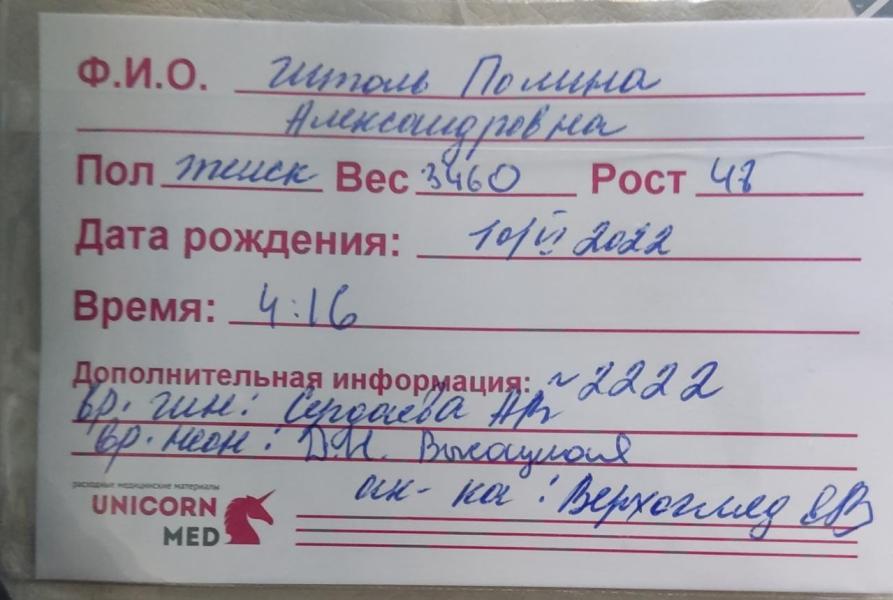 Ф.И.О. Штоль Полина
Александровна
Пол женск Вес 3460 Рост 48
Дата рождения: 10/VI 2022
Время: 4:16
Дополнительная информация: ~2222
вр. гин: Сердаева АВ
вр. неон: Д.Н.
ак-ка: Верхогляд
расходные медицинские материалы
UNICORN
MED